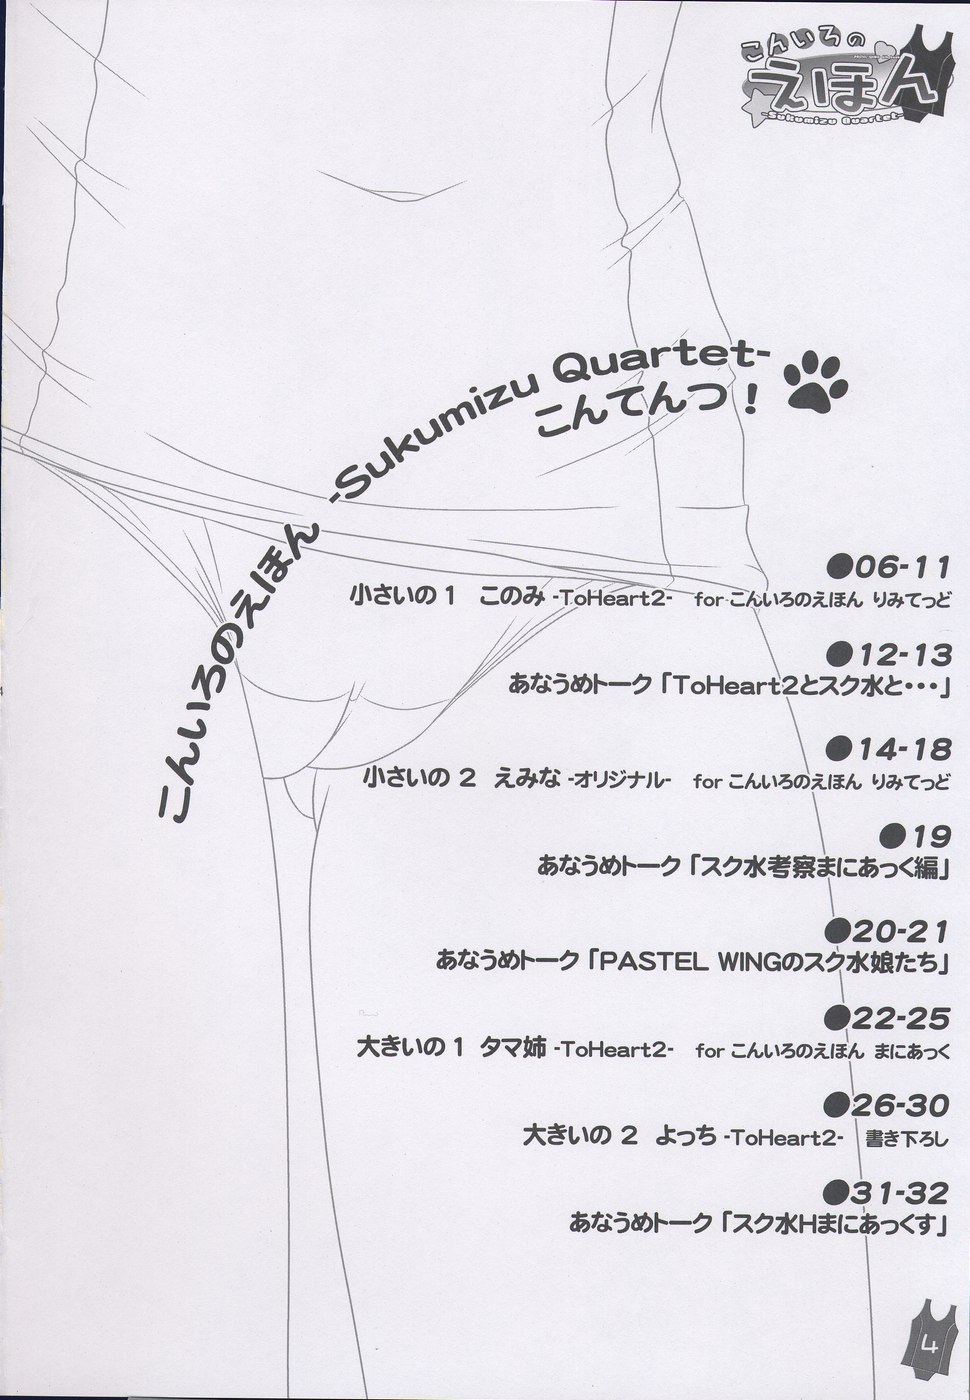 こんいろの
えほん
-Sukumizu Quartet-
こんいろのえほん -Sukumizu Quartet-
こんてんつ！
●06-11
小さいの 1 このみ -ToHeart2- for こんいろのえほん りみてっど
●12-13
あなうめトーク「ToHeart2とスク水と・・・」
●14-18
小さいの 2 えみな -オリジナル- for こんいろのえほん りみてっど
●19
あなうめトーク「スク水考察まにあっく編」
●20-21
あなうめトーク「PASTEL WINGのスク水娘たち」
●22-25
大きいの 1 タマ姉 -ToHeart2- for こんいろのえほん まにあっく
●26-30
大きいの 2 よっち -ToHeart2- 書き下ろし
●31-32
あなうめトーク「スク水Hまにあっくす」
4